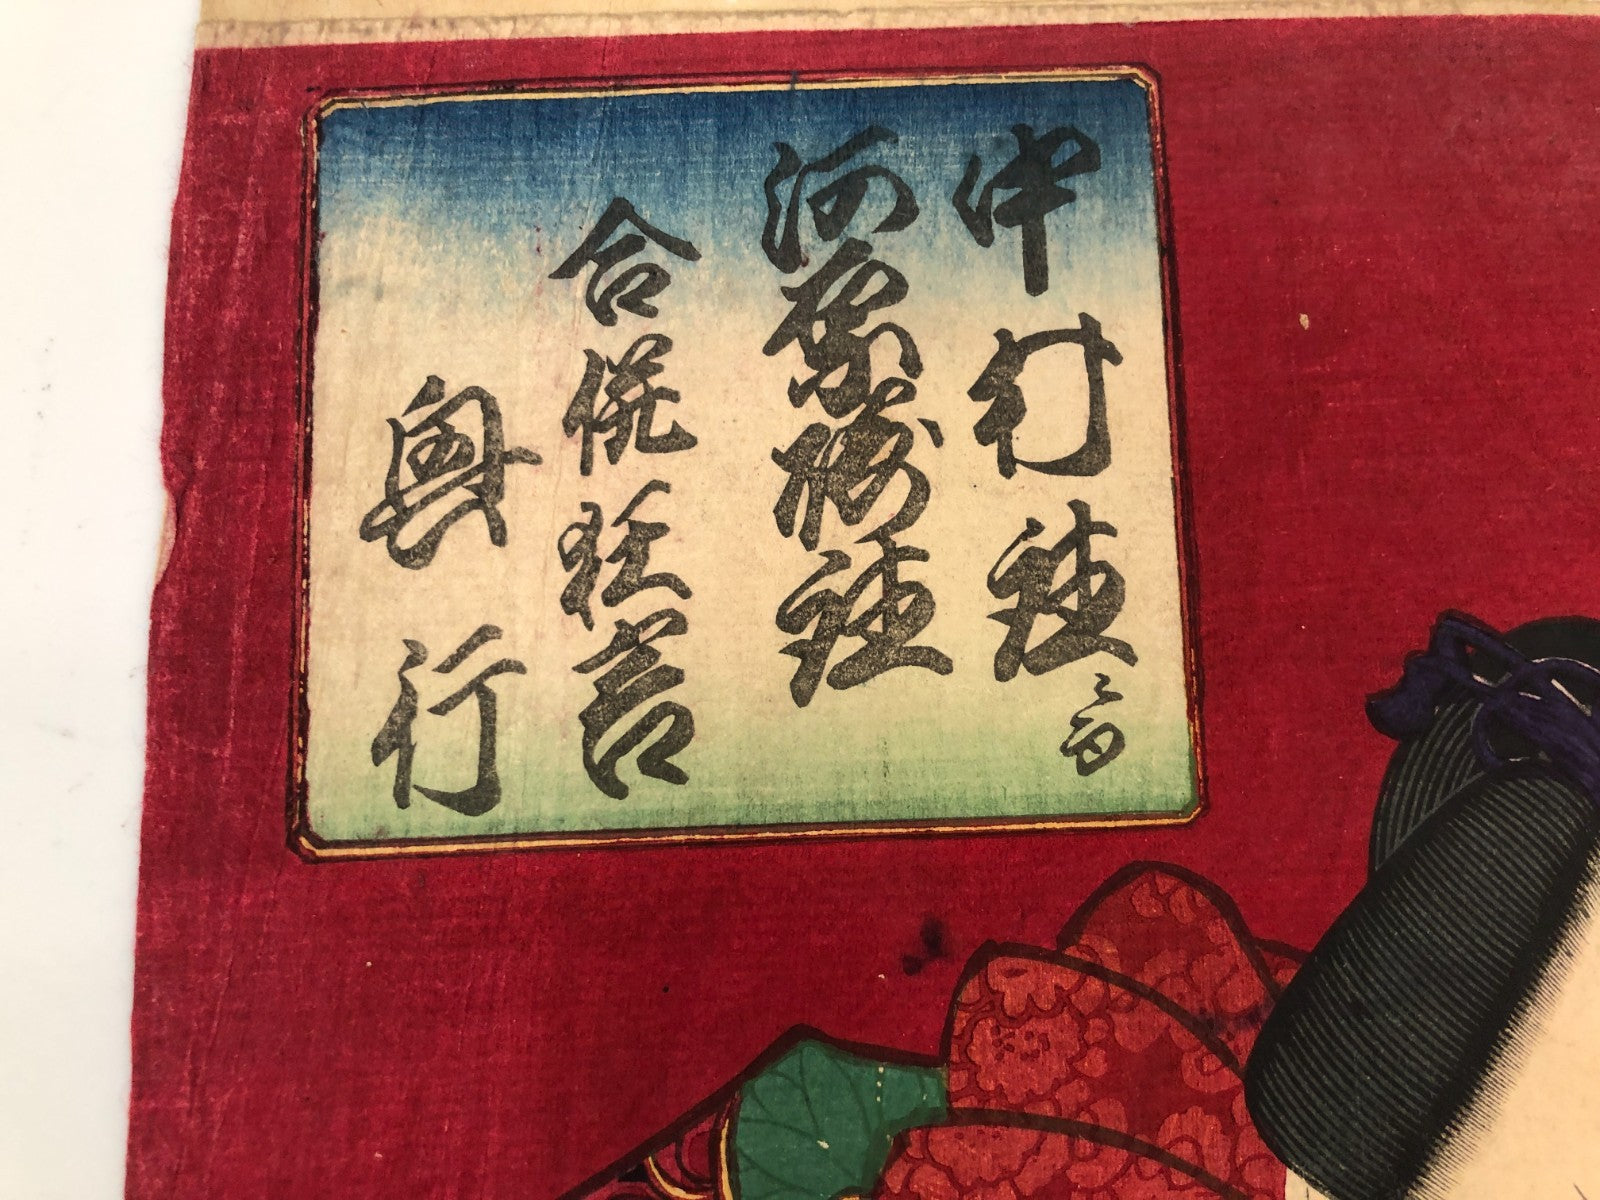 中村座ニ而
河原崎座
合併狂言
興行